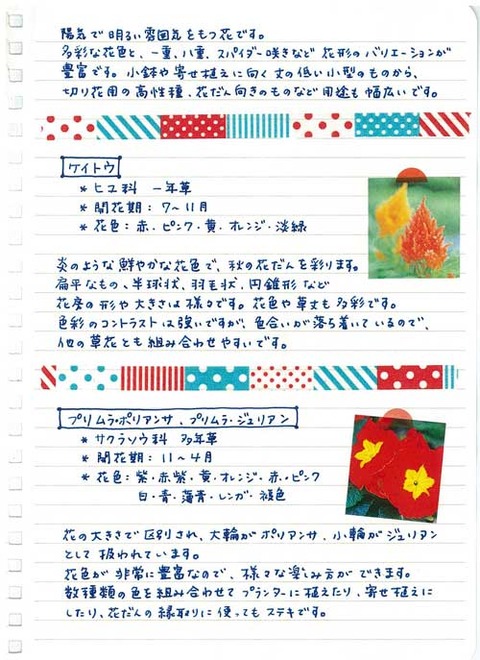 陽気で明るい雰囲気をもつ花です。
多彩な花色と、一重、八重、スパイダー咲きなど花形のバリエーションが
豊富です。小鉢や寄せ植えに向く丈の低い小型のものから、
切り花用の高性種、花だん向きのものなど用途も幅広いです。
ケイトウ
* ヒユ科 一年草
* 開花期：7〜11月
* 花色：赤・ピンク・黄・オレンジ・淡緑
炎のような鮮やかな花色で、秋の花だんを彩ります。
扁平なもの、半球状、羽毛状、円錐形など
花房の形や大きさは様々です。花色や草丈も多彩です。
色彩のコントラストは強いですが、色合いが落ち着いているので、
他の草花とも組み合わせやすいです。
プリムラ・ポリアンサ、プリムラ・ジュリアン
* サクラソウ科 多年草
* 開花期：11〜4月
* 花色：紫・赤紫・黄・オレンジ・赤・ピンク
白・青・薄青・レンガ・褐色
花の大きさで区別され、大輪がポリアンサ、小輪がジュリアン
として扱われています。
花色が非常に豊富なので、様々な楽しみ方ができます。
数種類の色を組み合わせてプランターに植えたり、寄せ植えに
したり、花だんの縁取りに使ってもステキです。